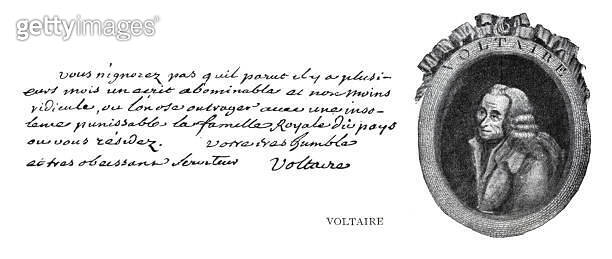 gettyimages
vous n'ignorez pas qu'il parut il y a plusi-
eurs mois un ecrit abominable et non moins
ridicule, ou l'on ose outrager avec une inso-
lence punissable la famille Royale du pays
ou vous résidez. votre tres humble
et tres obeissant serviteur Voltaire
VOLTAIRE
VOLTAIRE